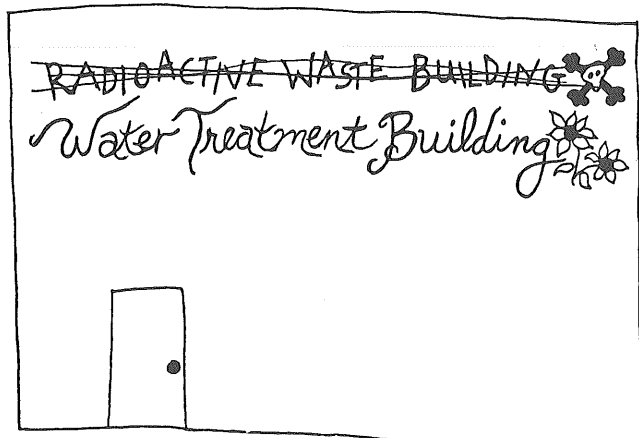 RADIOACTIVE WASTE BUILDING
Water Treatment Building